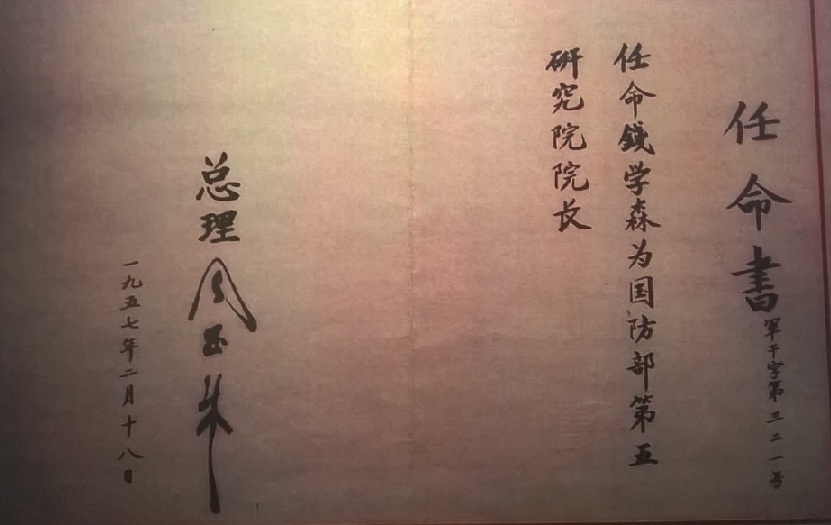 任命書
軍干字第三二一号
任命錢学森为国防部第五
研究院院长
总理 周恩来
一九五七年二月十八日